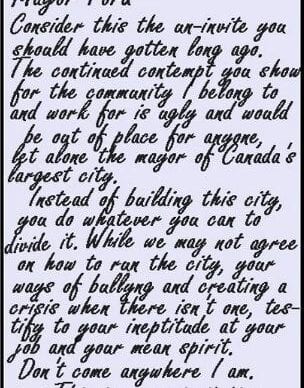 Mayor Ford
Consider this the un-invite you
should have gotten long ago.
The continued contempt you show
for the community I belong to
and work for is ugly and would
be out of place for anyone,
let alone the mayor of Canada's
largest city.
Instead of building this city,
you do whatever you can to
divide it. While we may not agree
on how to run the city, your
ways of bullyng and creating a
crisis when there isn't one, tes-
tify to your ineptitude at your
job and your mean spirit.
Don't come anywhere I am.